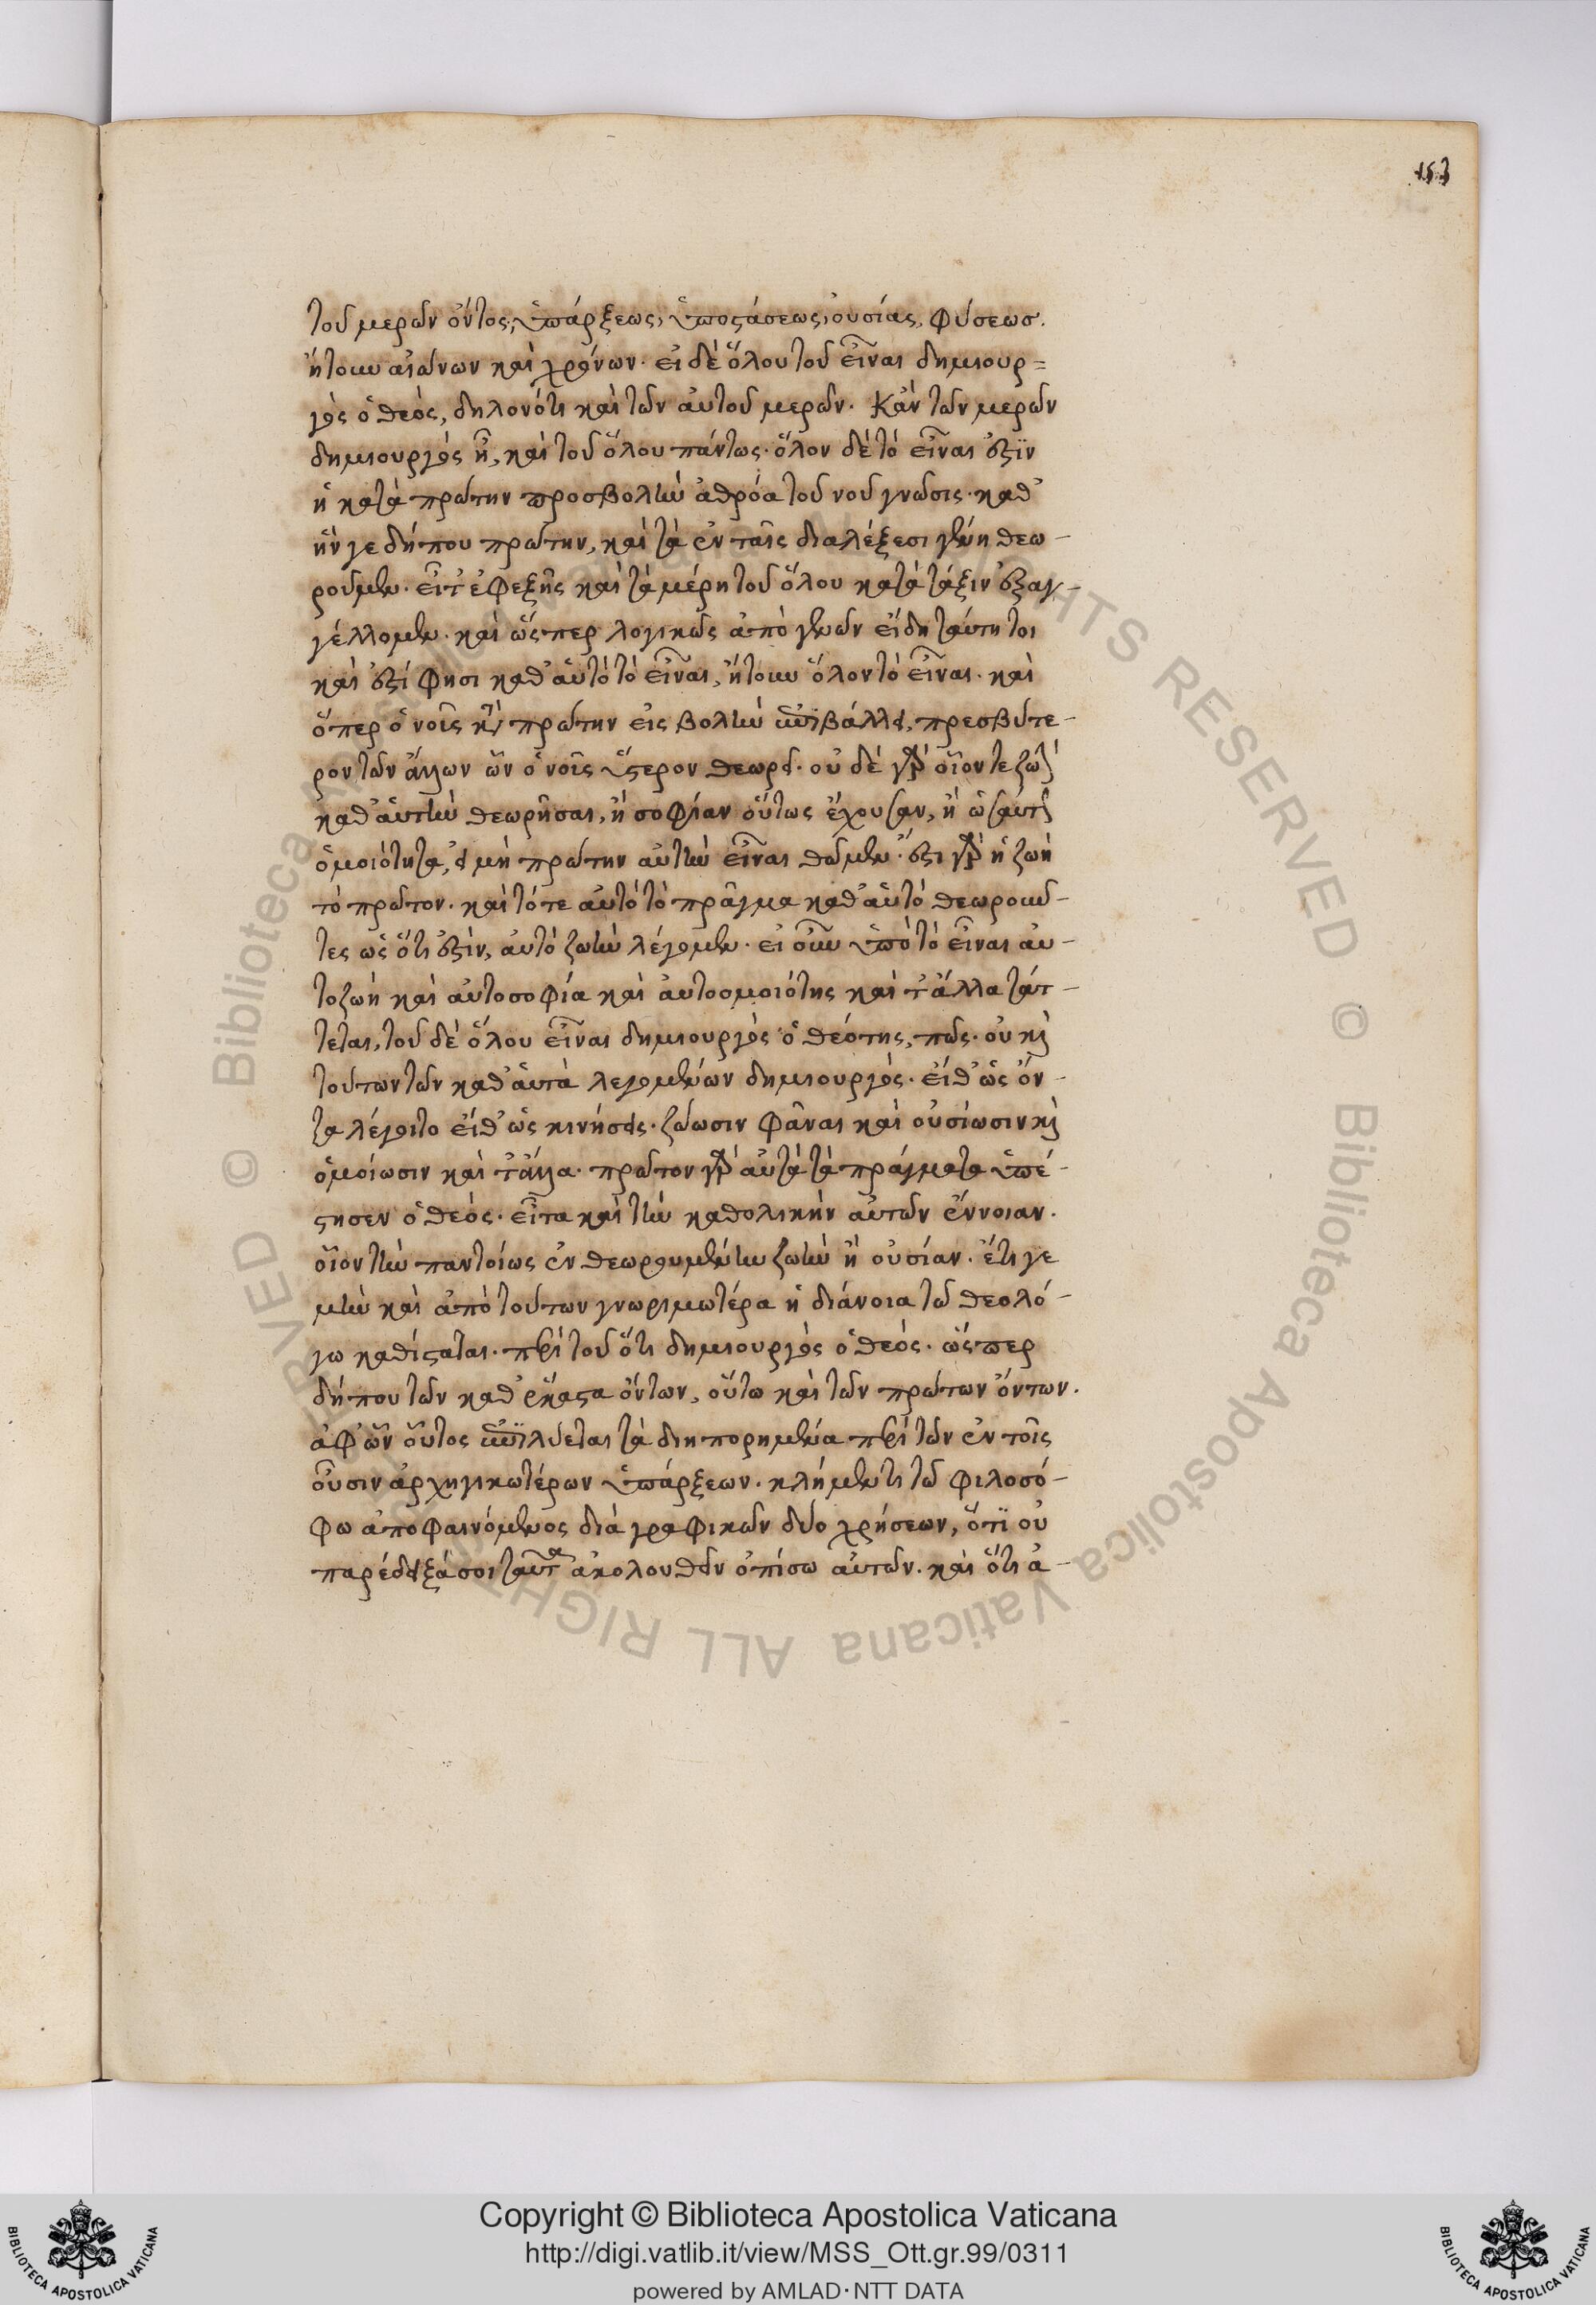 153
τοῦ μερῶν ὄντος, ὑπάρξεως, ὑποστάσεως, οὐσίας, φύσεως.
ἤτουν αἰώνων καὶ χρόνων. εἰ δὲ ὅλου τοῦ εἶναι δημιουρ=
γὸς ὁ θεὸς, δηλονότι καὶ τῶν αὐτοῦ μερῶν. Κἂν τῶν μερῶν
δημιουργὸς ᾖ, καὶ τοῦ ὅλου πάντως. ὅλον δὲ τὸ εἶναι ἐστὶν
ἡ κατὰ πρώτην προσβολὴν ἀθρόα τοῦ νοῦ γνῶσις. καθ᾽
ἥν γε δήπου πρώτην, καὶ τὰ ἐν ταῖς διαλέξεσι γένη θεω-
ροῦμεν. εἶτ᾽ ἐφεξῆς καὶ τὰ μέρη τοῦ ὅλου κατὰ τάξιν ἐξαγ-
γέλλομεν. καὶ ὥσπερ λογικῶς ἀπὸ γενῶν εἴδη ταύτῃ τοι
καὶ ἐστί φησι καθ᾽ αὑτὸ τὸ εἶναι, ἤτουν ὅλον τὸ εἶναι. καὶ
ὅπερ ὁ νοῦς κατὰ πρώτην εἰσβολὴν ἐπιβάλλει, πρεσβύτε-
ρον τῶν ἄλλων ὧν ὁ νοῦς ὕστερον θεωρεῖ. οὐδὲ γὰρ οἷόν τε ζωὴν
καθ᾽ αὑτὴν θεωρῆσαι, ἢ σοφίαν οὕτως ἔχουσαν, ἢ ὡσαύτως
ὁμοιότητα, εἰ μὴ πρώτην αὐτὴν εἶναι θῶμεν. ἔστι γὰρ ἡ ζωὴ
τὸ πρῶτον. καὶ τότε αὐτὸ τὸ πρᾶγμα καθ᾽ αὑτὸ θεωροῦν-
τες ὡς ὅτι ἐστὶν, αὐτὸ ζωὴν λέγομεν. εἰ οὖν ὑπὸ τὸ εἶναι αὐ-
τοζωὴ καὶ αὐτοσοφία καὶ αὐτοομοιότης καὶ τἄλλα τάτ-
τεται, τοῦ δὲ ὅλου εἶναι δημιουργὸς ὁ θεότης, πῶς. οὐ καὶ
τούτων τῶν καθ᾽ αὑτὰ λεγομένων δημιουργός. εἴθ᾽ ὡς ὄν-
τα λέγοιτο εἴθ᾽ ὡς κινήσεις. ζώωσιν φᾶναι καὶ οὐσίωσιν καὶ
ὁμοίωσιν καὶ τἄλλα. πρῶτον γὰρ αὐτὰ τὰ πράγματα ὑπέ-
στησεν ὁ θεός. εἶτα καὶ τὴν καθολικὴν αὐτῶν ἔννοιαν.
οἷον τὴν παντοίως ἐνθεωρουμένην ζωὴν ἢ οὐσίαν. ἔτι γε
μὴν καὶ ἀπὸ τούτων γνωριμωτέρα ἡ διάνοια τῷ θεολό-
γω καθίσταται. περὶ τοῦ ὅτι δημιουργὸς ὁ θεός. ὥσπερ
δήπου τῶν καθ᾽ ἕκαστα ὄντων, οὕτω καὶ τῶν πρώτων ὄντων.
ἀφ᾽ ὧν οὗτος ἐπιλύεται τὰ διηπορημένα περὶ τῶν ἐν τοῖς
οὖσιν ἀρχηγικωτέρων ὑπάρξεων. κλήμεντι τῷ φιλοσό-
φω ἀποφαινόμενος διὰ γραφικῶν δύο χρήσεων, ὅτι οὐ
παρέδειξά σοι ταῦτα ἀκολουθεῖν ὀπίσω αὐτῶν. καὶ ὅτι ἀ-
Copyright © Biblioteca Apostolica Vaticana
http://digi.vatlib.it/view/MSS_Ott.gr.99/0311
powered by AMLAD·NTT DATA